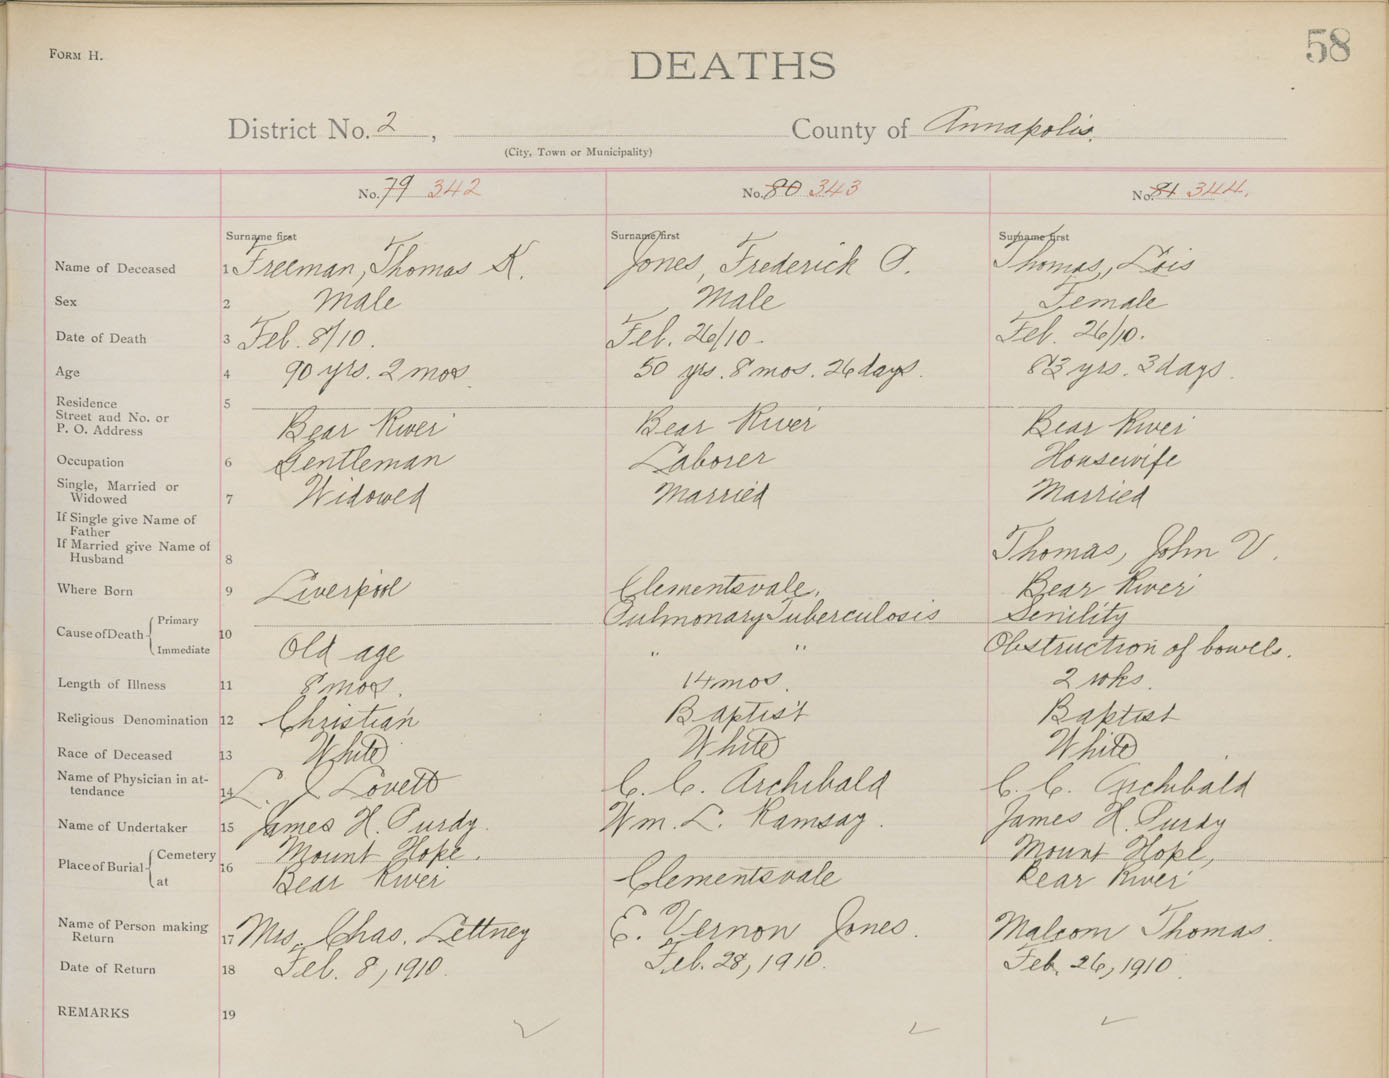 58
FORM H.
DEATHS
District No. 2, County of Annapolis.
(City, Town or Municipality)
No. 79 342 No. 80 343 No. 81 344.
Surname first Surname first Surname first
Name of Deceased 1 Freeman, Thomas K. Jones, Frederick O. Thomas, Lois
Sex 2 Male Male Female
Date of Death 3 Feb. 8/10. Feb. 26/10. Feb. 26/10.
Age 4 90 yrs. 2 mos. 50 yrs. 8 mos. 26 days. 83 yrs. 3 days.
Residence 5
Street and No. or
P. O. Address Bear River Bear River Bear River
Occupation 6 Gentleman Laborer Housewife
Single, Married or
Widowed 7 Widowed Married Married
If Single give Name of
Father
If Married give Name of
Husband 8 Thomas, John V.
Where Born 9 Liverpool Clementsvale, Bear River
Cause of Death Primary 10 Pulmonary Tuberculosis Senility
Immediate Old age " " Obstruction of bowels.
Length of Illness 11 8 mos. 14 mos. 2 wks.
Religious Denomination 12 Christian Baptist Baptist
Race of Deceased 13 White White White
Name of Physician in at-
tendance 14 L. J. Lovett C. C. Archibald C. C. Archibald
Name of Undertaker 15 James H. Purdy. Wm. L. Ramsay. James H. Purdy
Place of Burial Cemetery 16 Mount Hope. Mount Hope,
at Bear River Clementsvale Bear River
Name of Person making
Return 17 Mrs. Chas. Lettney E. Vernon Jones. Malcom Thomas.
Date of Return 18 Feb. 8, 1910. Feb. 28, 1910. Feb. 26, 1910.
REMARKS 19